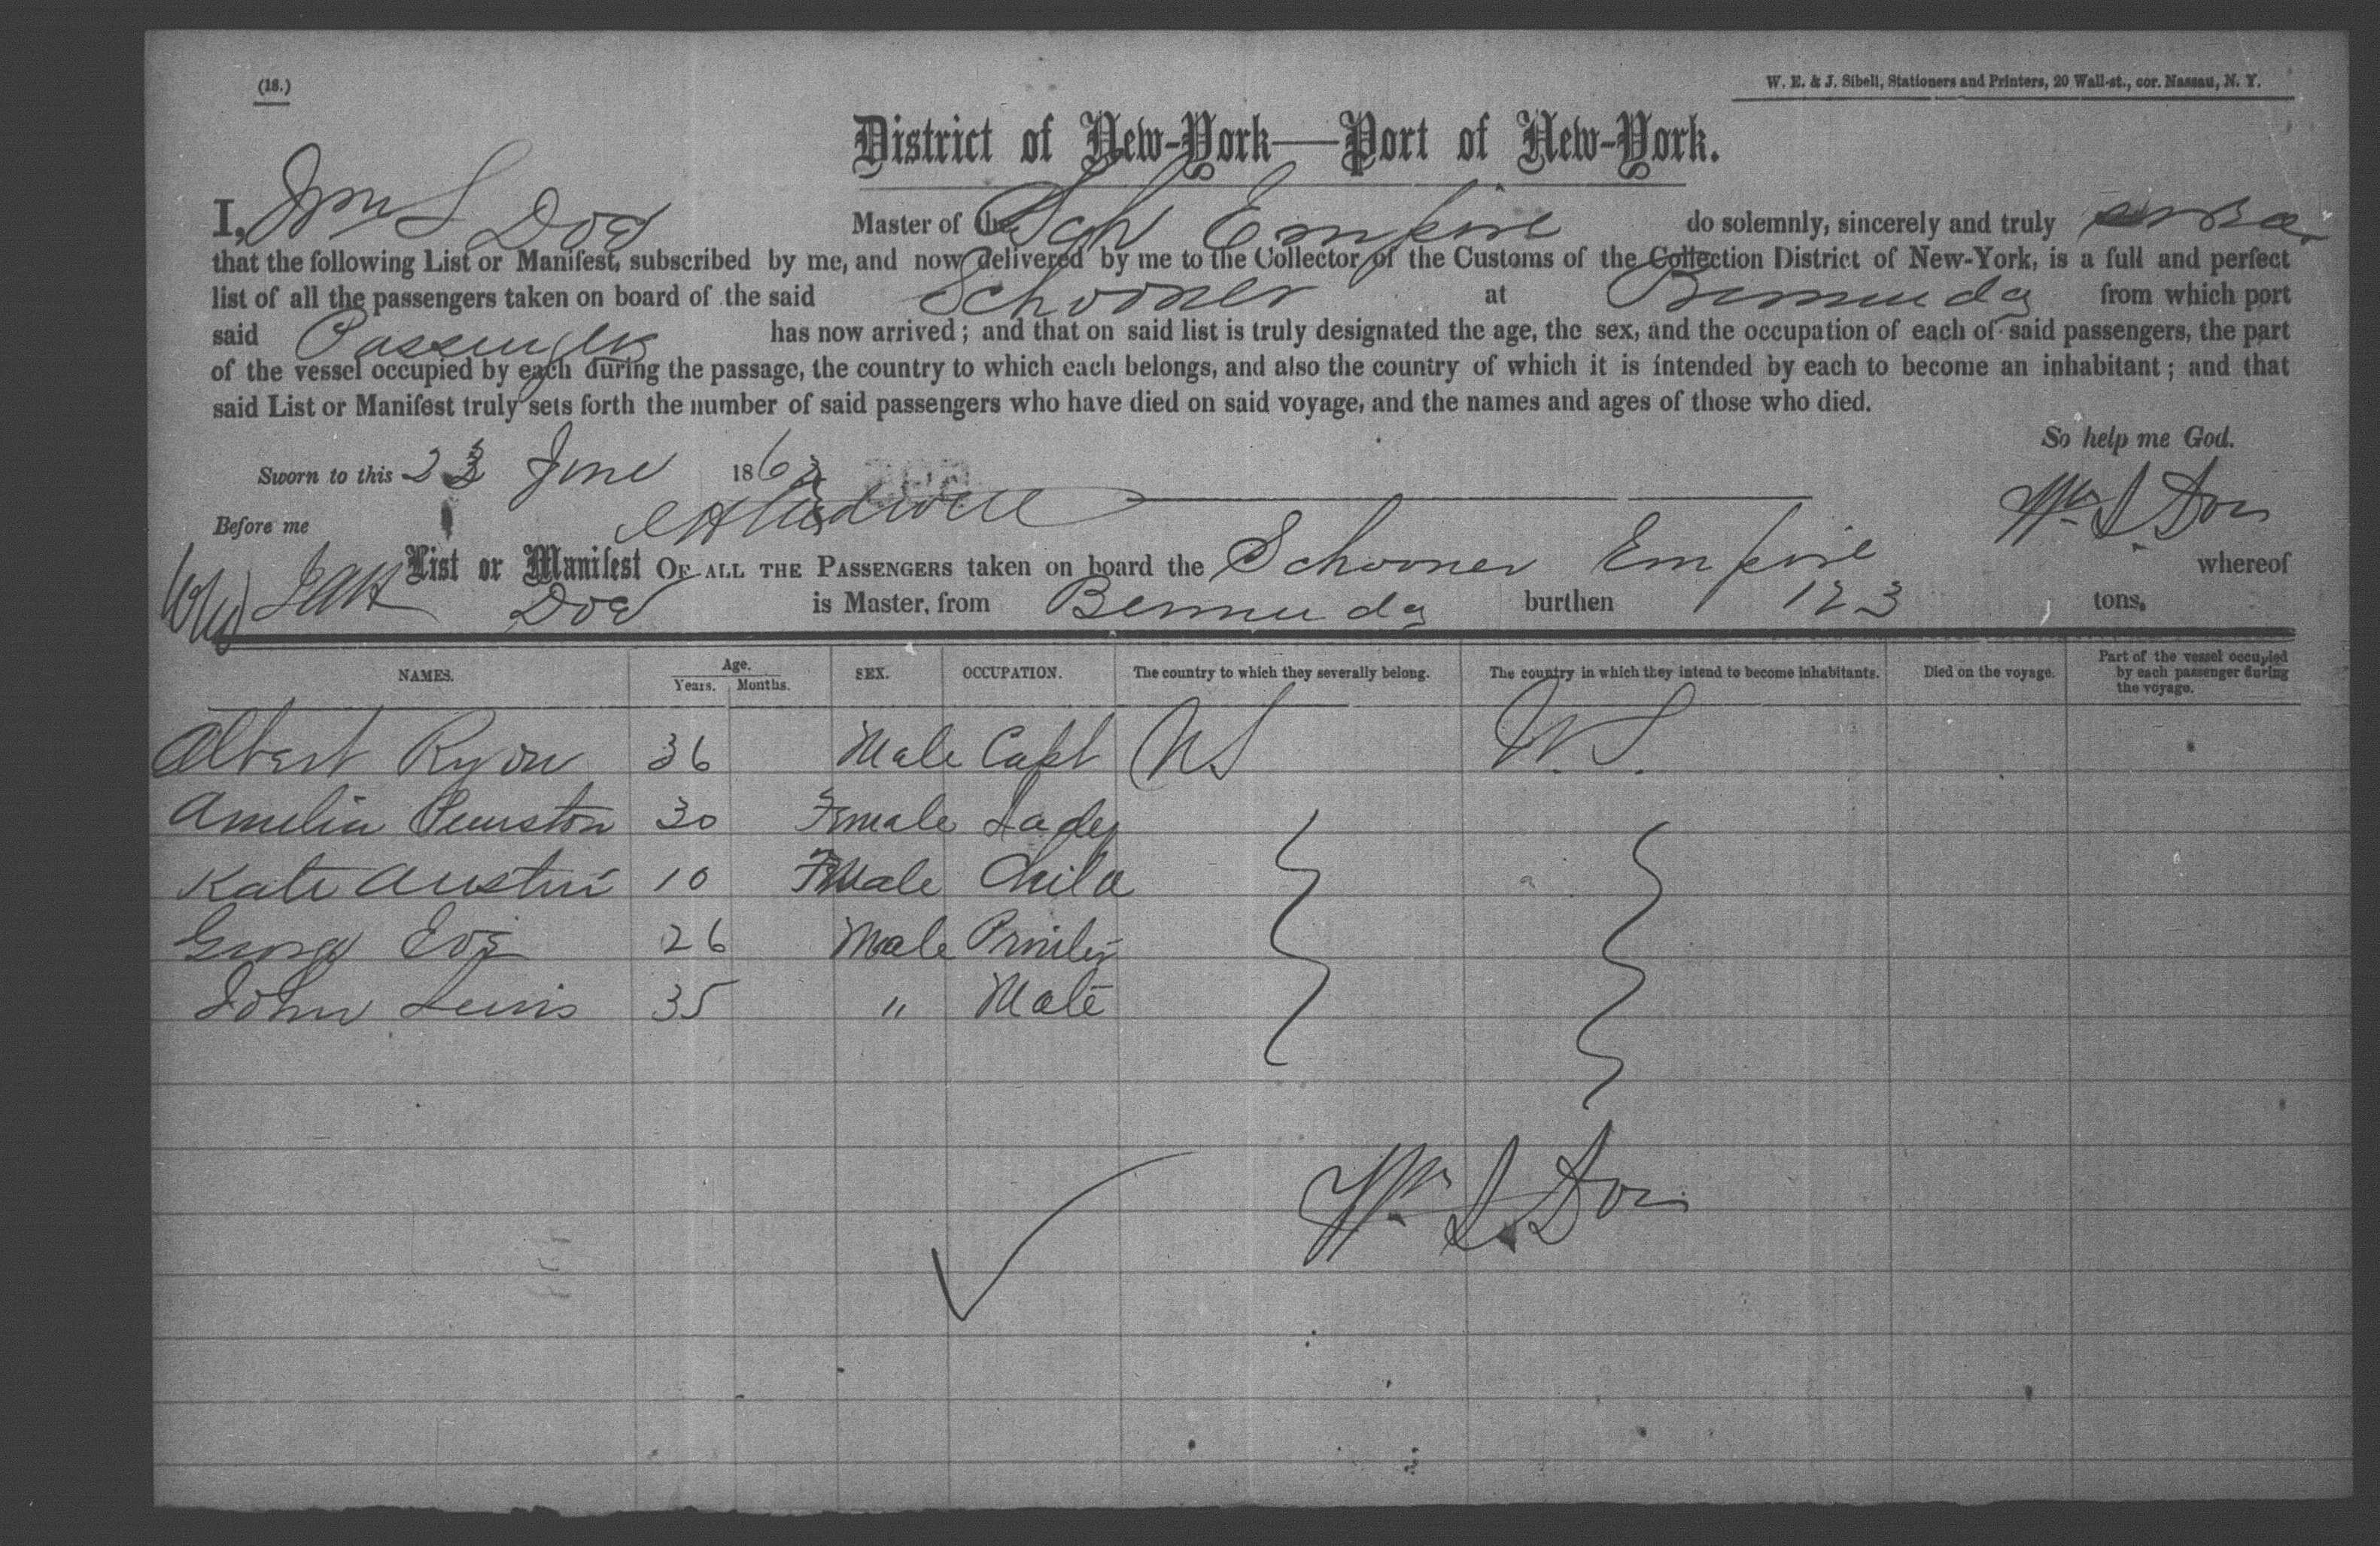 (18.)
W. E. & J. Sibell, Stationers and Printers, 20 Wall-st., cor. Nassau, N. Y.
District of New-York—Port of New-York.
I, Wm S Doe Master of the Sch Empire do solemnly, sincerely and truly
that the following List or Manifest, subscribed by me, and now delivered by me to the Collector of the Customs of the Collection District of New-York, is a full and perfect
list of all the passengers taken on board of the said Schooner at Bermuda from which port
said Passengers has now arrived; and that on said list is truly designated the age, the sex, and the occupation of each of said passengers, the part
of the vessel occupied by each during the passage, the country to which each belongs, and also the country of which it is intended by each to become an inhabitant; and that
said List or Manifest truly sets forth the number of said passengers who have died on said voyage, and the names and ages of those who died.
So help me God.
Sworn to this 23 June 1863
Wm S Doe
Before me
List or Manifest OF ALL THE PASSENGERS taken on board the Schooner Empire whereof
Doe is Master, from Bermuda burthen 123 tons.
NAMES. Age. Years. Months. SEX. OCCUPATION. The country to which they severally belong. The country in which they intend to become inhabitants. Died on the voyage. Part of the vessel occupied by each passenger during the voyage.
Albert Ryon 36 Male Capt US U.S.
Amelia 30 Female Lady
Kate Austin 10 Female Child
George 26 Male Printer
John Lewis 35 " Mate
Wm S Doe